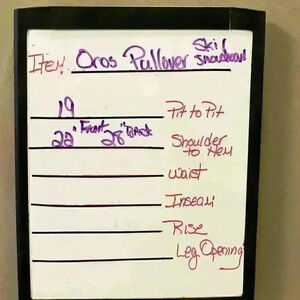 Item Oros Pullover Ski/
Snowboard
19 Pit to Pit
22" Front 28" Back Shoulder
to Hem
Waist
Inseam
Rise
Leg Opening